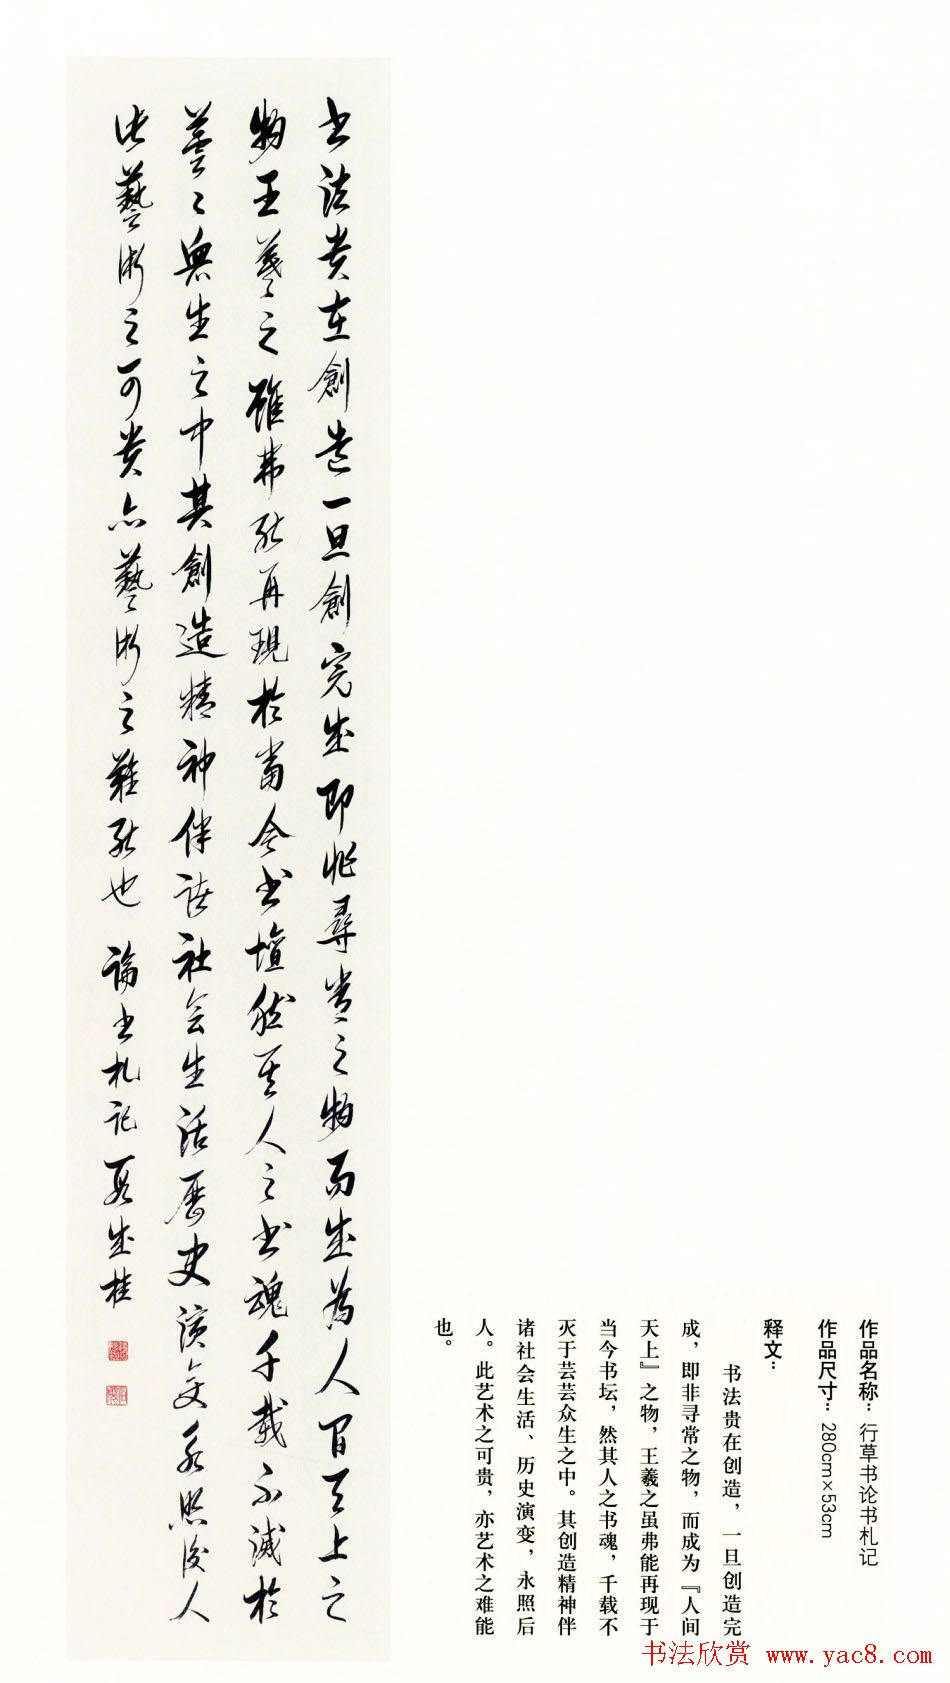 書法貴在創造一旦創完成即非尋常之物而成為人間天上之
物王羲之雖弗能再現於當今書壇然其人之書魂千載不滅於
芸芸眾生之中其創造精神伴諸社会生活歷史演变永照後人
此藝術之可貴亦藝術之難能也 論書札記 段成桂
作品名称：行草书论书札记
作品尺寸：280cm×53cm
释文：
书法贵在创造，一旦创造完
成，即非寻常之物，而成为『人间
天上』之物，王羲之虽弗能再现于
当今书坛，然其人之书魂，千载不
灭于芸芸众生之中。其创造精神伴
诸社会生活、历史演变，永照后
人。此艺术之可贵，亦艺术之难能
也。
书法欣赏 www.yac8.com